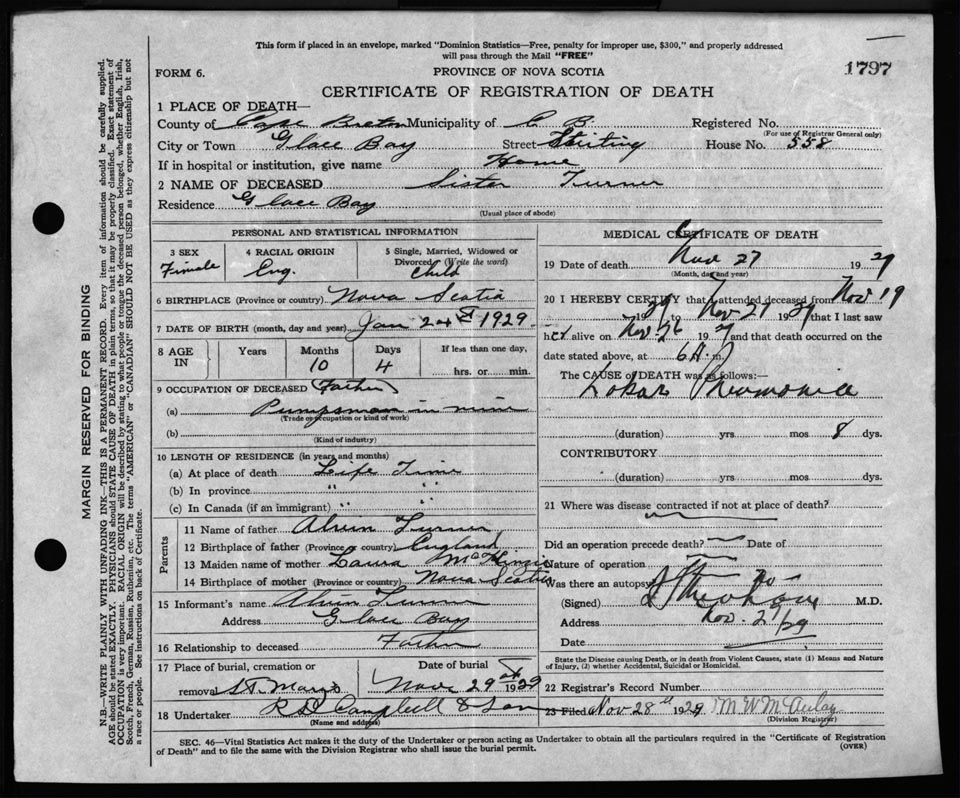 This form if placed in an envelope, marked "Dominion Statistics—Free, penalty for improper use, $300," and properly addressed
will pass through the Mail "FREE"
FORM 6.
PROVINCE OF NOVA SCOTIA
1797
CERTIFICATE OF REGISTRATION OF DEATH
1 PLACE OF DEATH—
County of Cape Breton Municipality of C B. Registered No.
(For use of Registrar General only)
City or Town Glace Bay Street Sterling House No. 558
If in hospital or institution, give name Home
2 NAME OF DECEASED Sister Turner
Residence Glace Bay
(Usual place of abode)
PERSONAL AND STATISTICAL INFORMATION
3 SEX Fimale
4 RACIAL ORIGIN Eng.
5 Single, Married, Widowed or Divorced (Write the word) Child
6 BIRTHPLACE (Province or country) Nova Scotia
7 DATE OF BIRTH (month, day and year) Jan 24th 1929
8 AGE IN Years Months 10 Days 4 If less than one day, hrs. or min.
9 OCCUPATION OF DECEASED Father
(a) Pumpsman in mine
(Trade or occupation or kind of work)
(b)
(Kind of industry)
10 LENGTH OF RESIDENCE (in years and months)
(a) At place of death Life Time
(b) In province " "
(c) In Canada (if an immigrant) " "
Parents
11 Name of father Alvin Turner
12 Birthplace of father (Province or country) England
13 Maiden name of mother Laura McKinzie
14 Birthplace of mother (Province or country) Nova Scotia
15 Informant's name Alvin Turner
Address Glace Bay
16 Relationship to deceased Father
17 Place of burial, cremation or removal St. Marys
Date of burial Nov 29th 1929
18 Undertaker R D Campbell & Son
(Name and address)
MEDICAL CERTIFICATE OF DEATH
19 Date of death Nov 27 1929
(Month, day and year)
20 I HEREBY CERTIFY that I attended deceased from Nov 19
1929 to Nov. 27 1929 that I last saw
her alive on Nov. 26 1929 and that death occurred on the
date stated above, at 6 A. m.
The CAUSE OF DEATH was as follows:—
Lobar Pneumonia
(duration) yrs mos 8 dys.
CONTRIBUTORY
(duration) yrs mos dys.
21 Where was disease contracted if not at place of death?
Did an operation precede death? Date of
Nature of operation
Was there an autopsy? no
(Signed) M.D.
Address Nov. 27/29
Date
State the Disease causing Death, or in death from Violent Causes, state (1) Means and Nature
of Injury, (2) whether Accidental, Suicidal or Homicidal.
22 Registrar's Record Number
23 Filed Nov 28th 1929 M W McAulay
(Division Registrar)
SEC. 46—Vital Statistics Act makes it the duty of the Undertaker or person acting as Undertaker to obtain all the particulars required in the "Certificate of Registration
of Death" and to file the same with the Division Registrar who shall issue the burial permit.
(OVER)
MARGIN RESERVED FOR BINDING
N.B.—WRITE PLAINLY WITH UNFADING INK—THIS IS A PERMANENT RECORD. Every item of information should be carefully supplied.
AGE should be stated EXACTLY. PHYSICIANS should STATE CAUSE OF DEATH in plain terms, so that it may be properly classified. Exact statement of
OCCUPATION is very important. RACIAL ORIGIN will be described by stating to what people or tongue the deceased person belonged, whether English, Irish,
Scotch, French, German, Russian, Ruthenian, etc. The terms "AMERICAN" or "CANADIAN" SHOULD NOT BE USED as they express citizenship but not
a race or people. See instructions on back of Certificate.